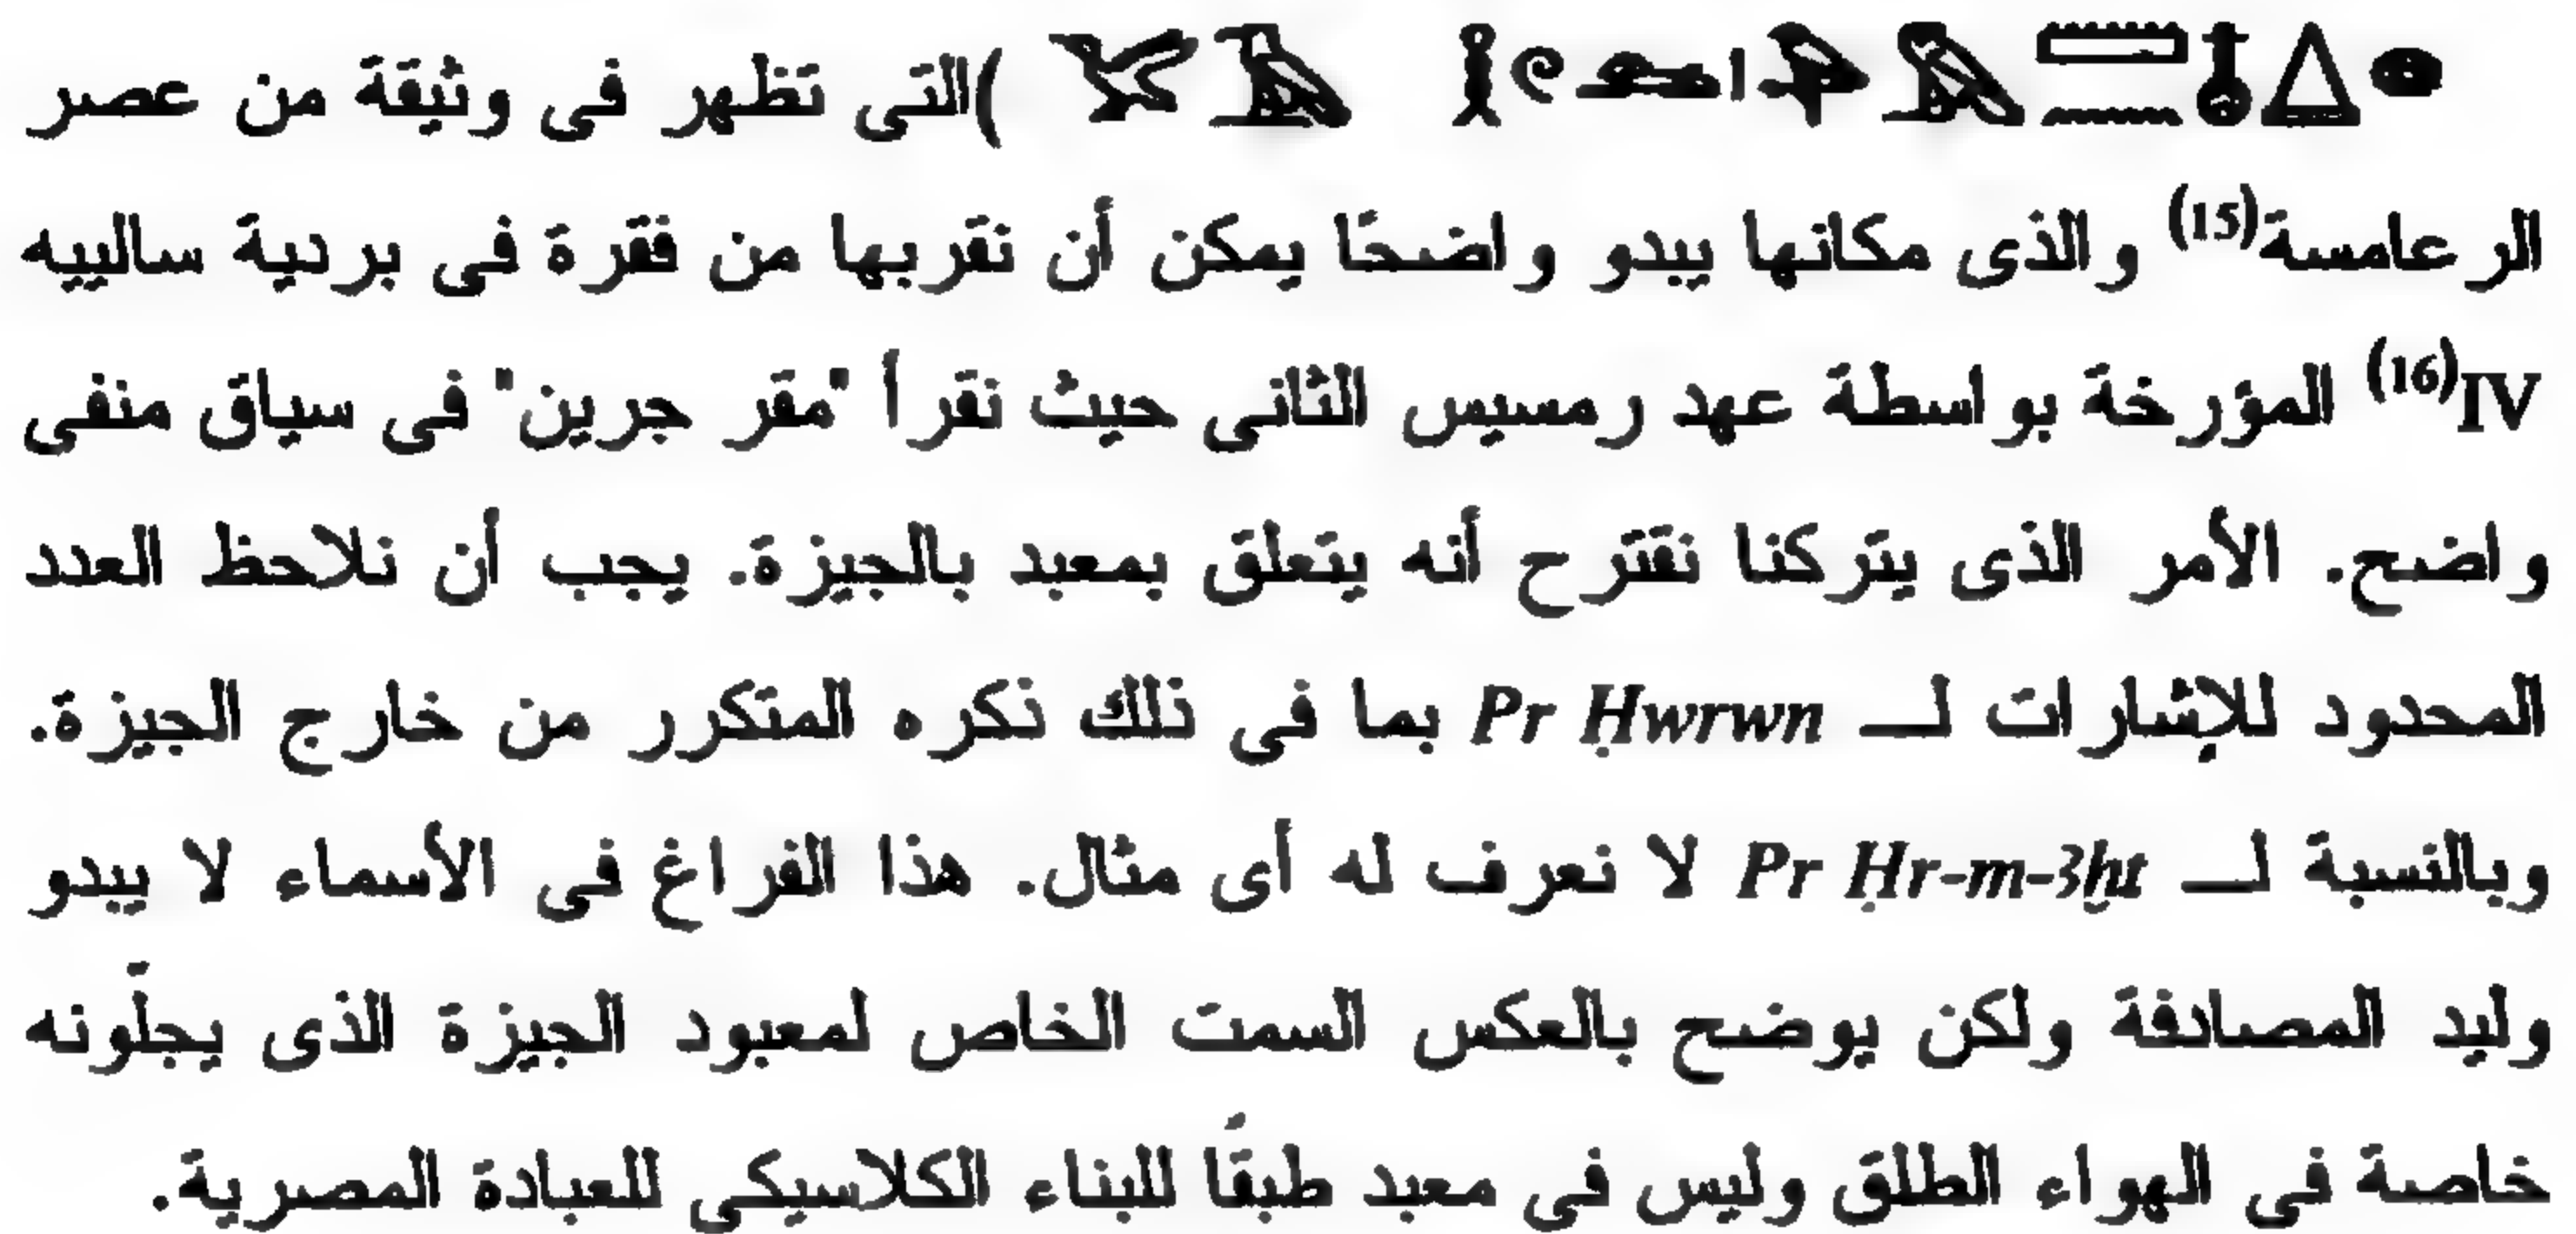 )التى تظهر فى وثيقة من عصر
الرعامسة(15) والذى مكانها يبدو واضحًا يمكن أن نقربها من فقرة فى بردية سالييه
IV(16) المؤرخة بواسطة عهد رمسيس الثانى حيث نقرأ "مقر جرين" فى سياق منفى
واضح. الأمر الذى يتركنا نقترح أنه يتعلق بمعبد بالجيزة. يجب أن نلاحظ العدد
المحدود للإشارات لـ Pr Ḥwrwn بما فى ذلك ذكره المتكرر من خارج الجيزة.
وبالنسبة لـ Pr Ḥr-m-3ḫt لا نعرف له أى مثال. هذا الفراغ فى الأسماء لا يبدو
وليد المصادفة ولكن يوضح بالعكس السمت الخاص لمعبود الجيزة الذى يجلّونه
خاصة فى الهواء الطلق وليس فى معبد طبقًا للبناء الكلاسيكى للعبادة المصرية.